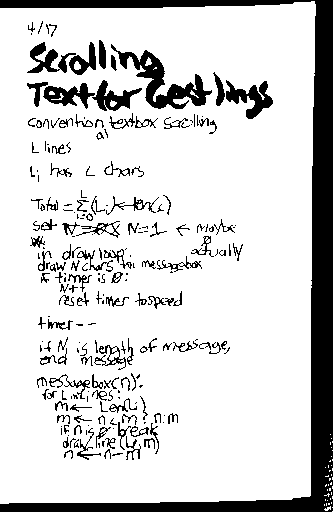 4/17
Scrolling
Text for Gestlings
Conventional textbox scrolling
L lines
Li has L chars
Total = Σ i=0 L (Li) ← len(L)
set N=0 N=1 ← maybe 0 actually
in draw loop:
draw N chars in messagebox
if timer is 0:
N++
reset timer to speed
timer--
if N is length of message,
end message
messagebox(n):
for L in Lines:
m ← Len(L)
m ← n < m ? n : m
if n is 0 break
draw line (L, m)
n ← n - m